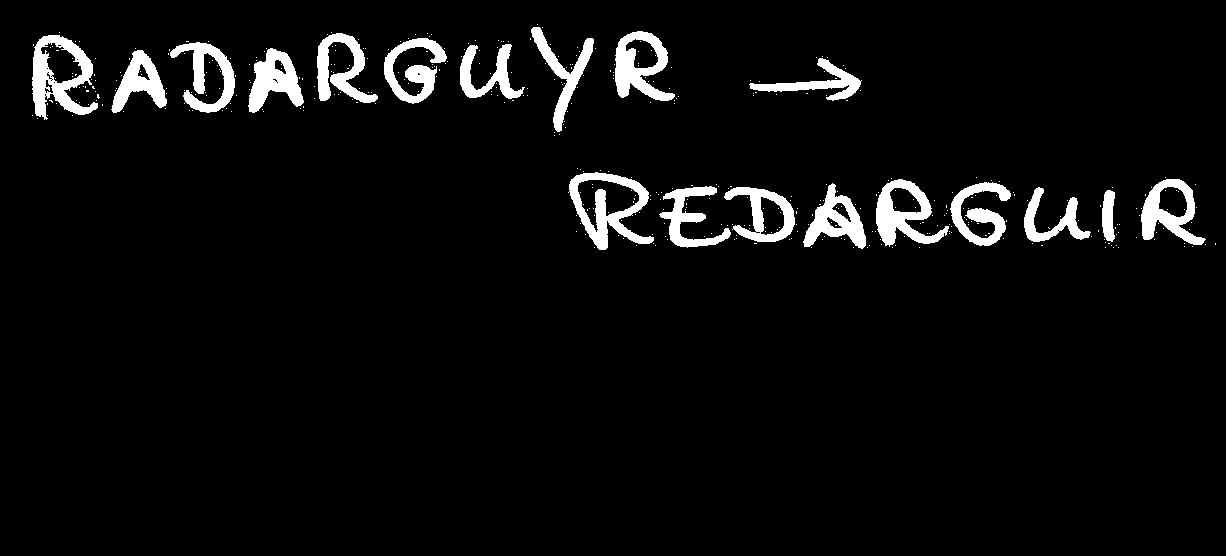 RADARGUYR →
REDARGUIR